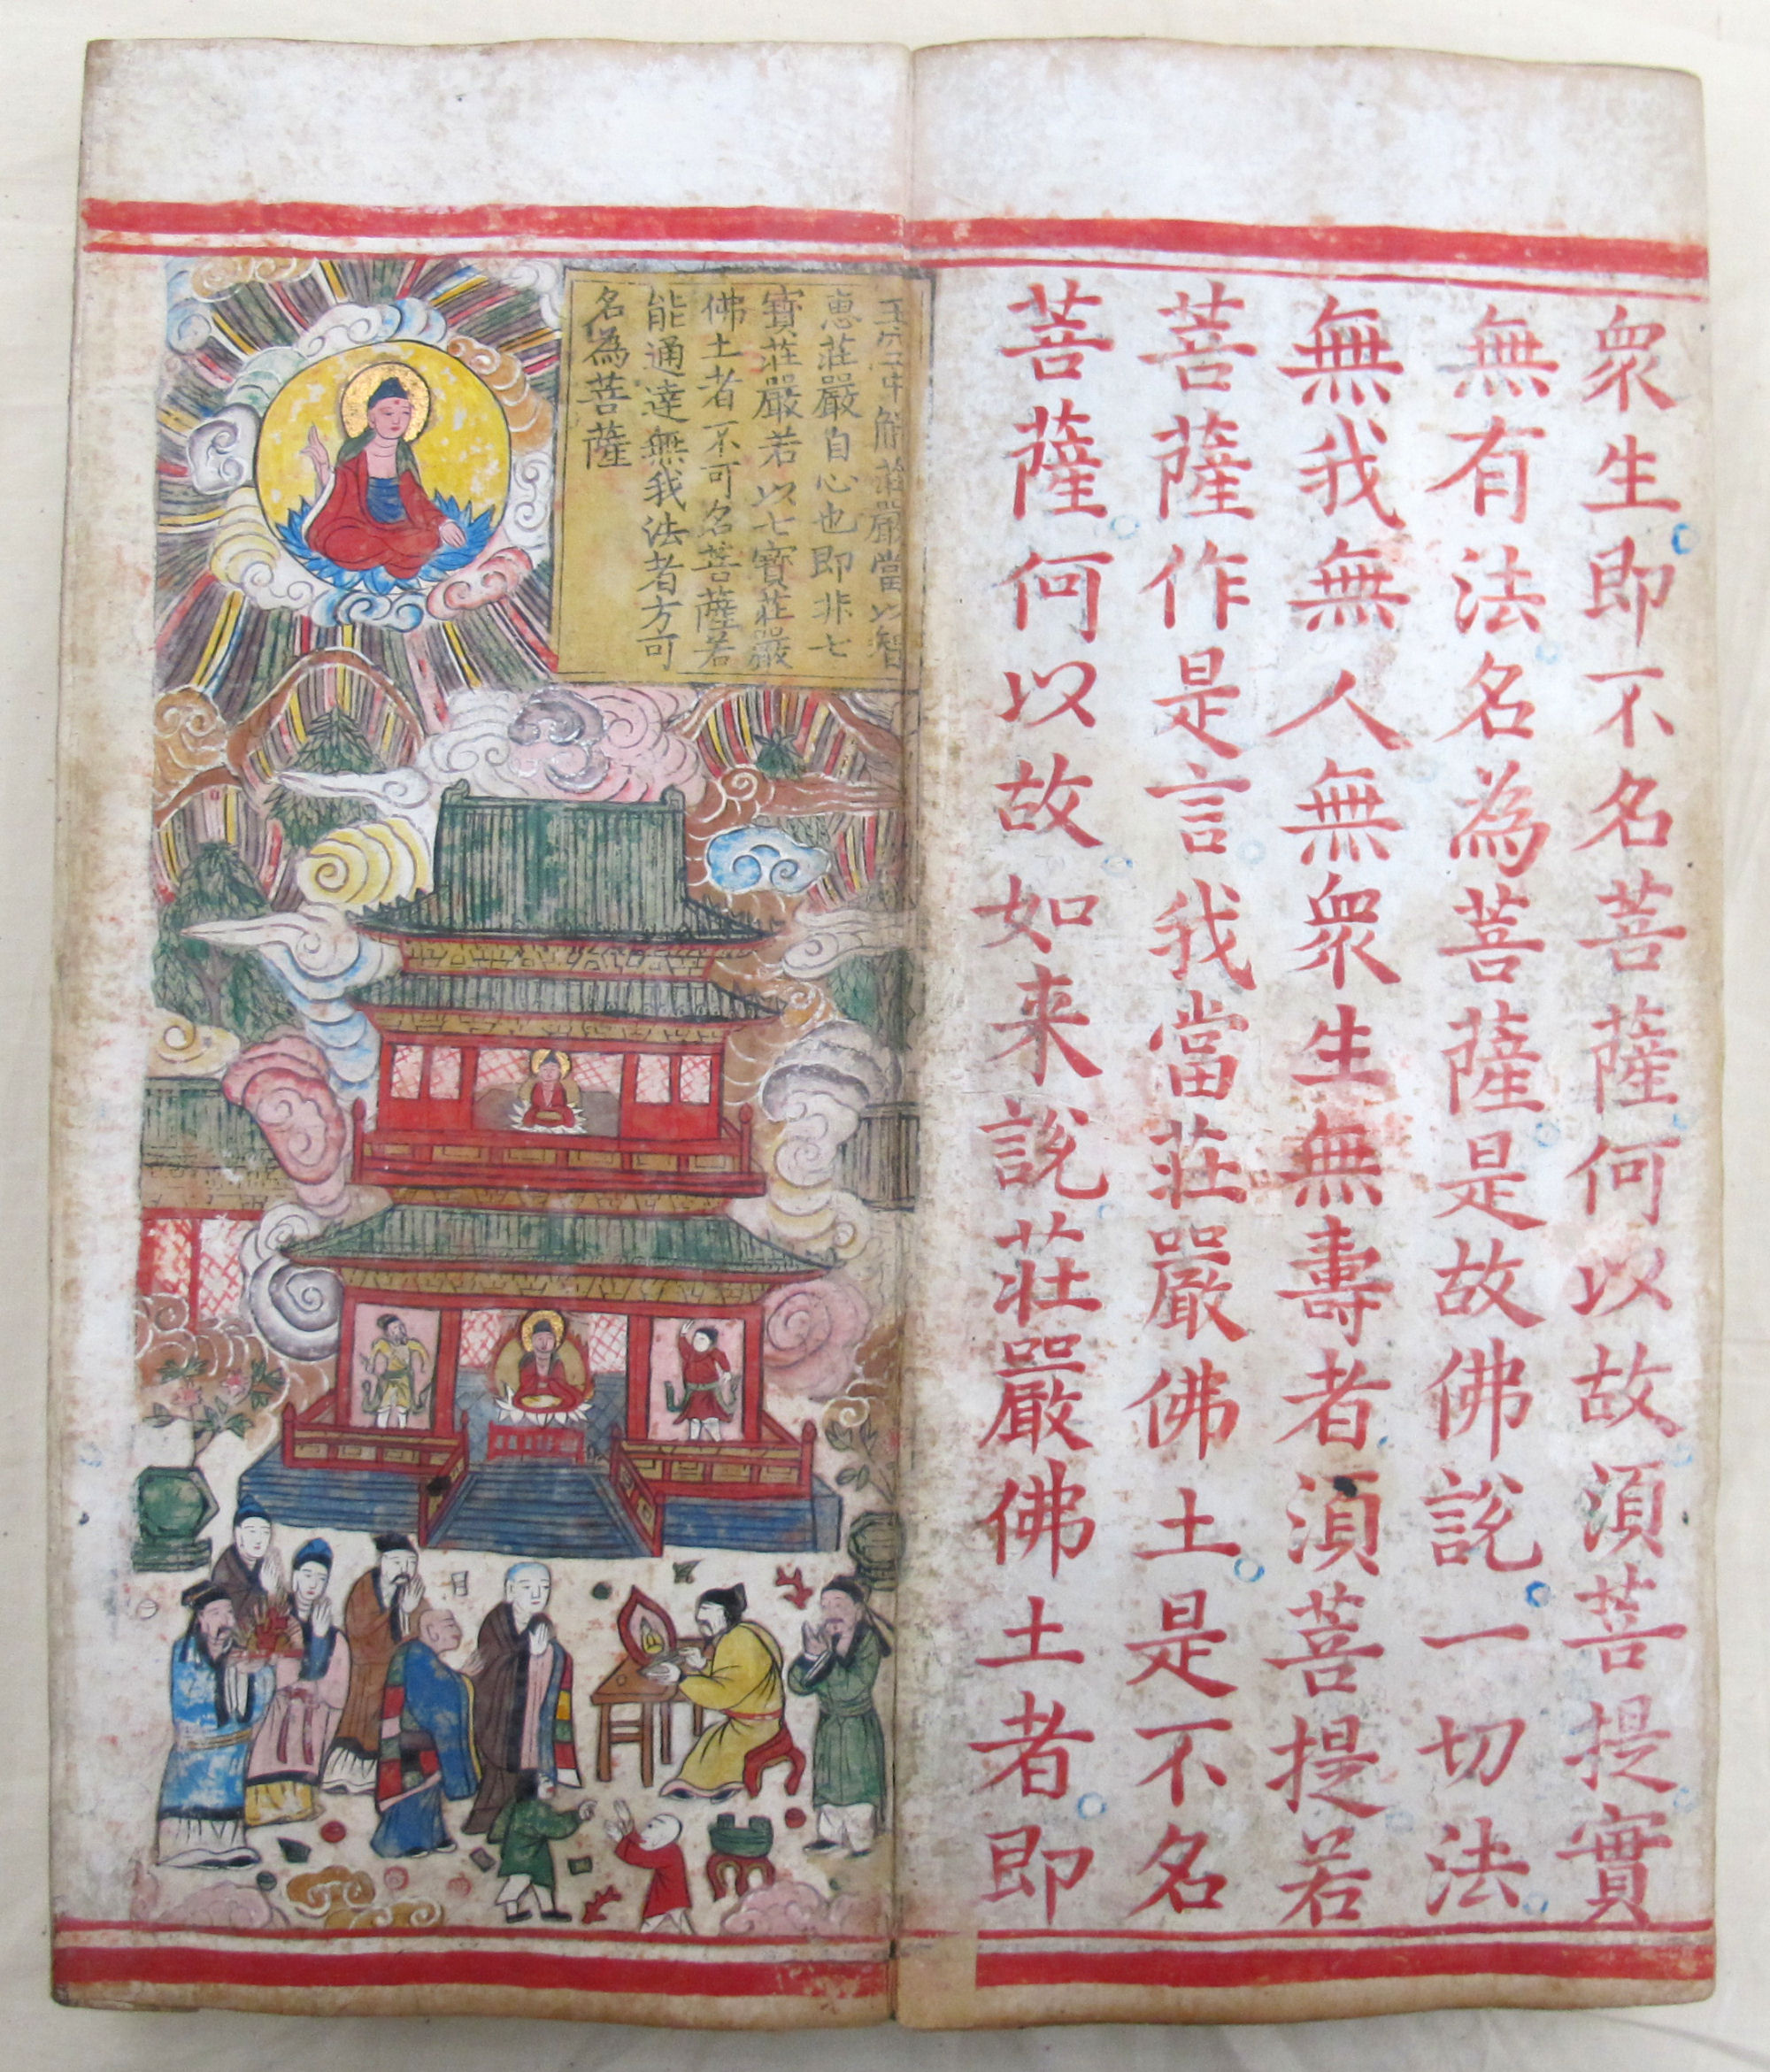 衆生即不名菩薩何以故湏菩提實
無有法名為菩薩是故佛說一切法
無我無人無衆生無壽者湏菩提若
菩薩作是言我當莊嚴佛土是不名
菩薩何以故如来說莊嚴佛土者即
解莊嚴當以智
恵莊嚴自心也即非七
寶莊嚴若以七寶莊嚴
佛土者不可名菩薩若
能通達無我法者方可
名為菩薩